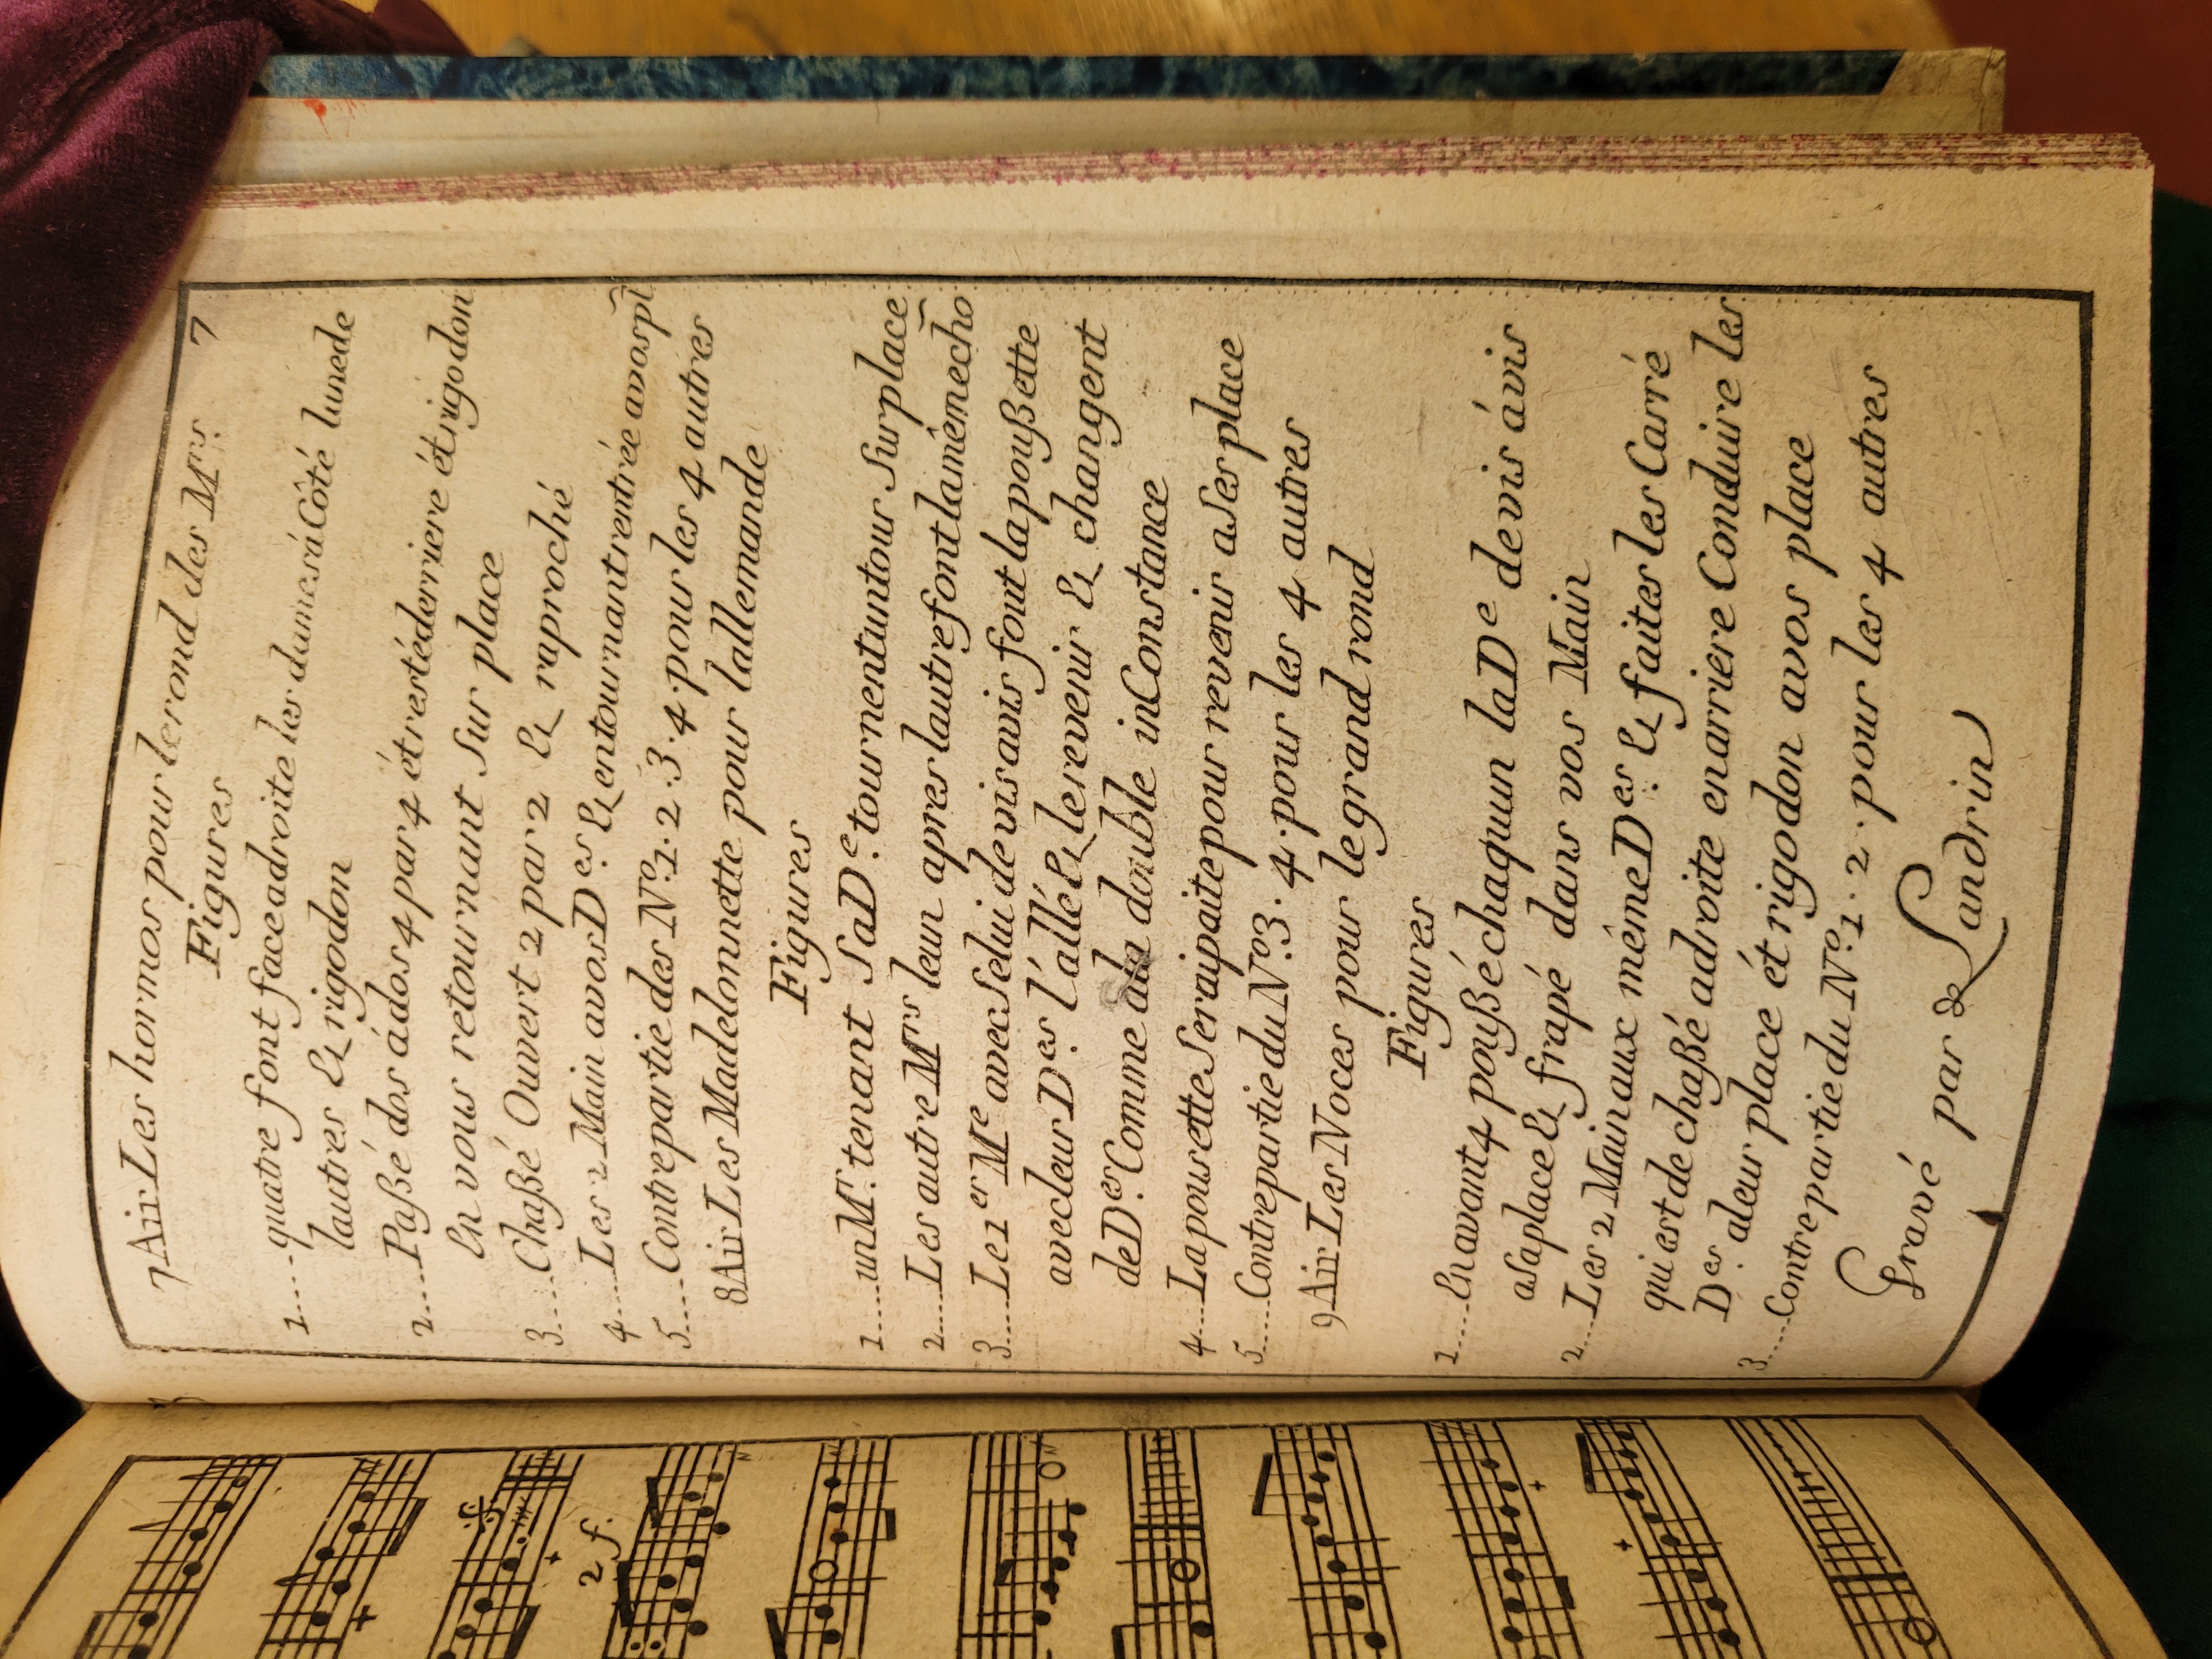 7
7 Air Les hormos pour le rond des Mrs.
Figures
1.... quatre font face adroite les dames á Côté lune de
lautres & rigodon
2.... Paßé dos á dos 4 par 4 ét resté derriere ét rigodon
En vous retournant Sur place
3.... Chaßé Ouvert 2 par 2 & raproché
4.... Les 2 Main a vos Des. & entournant rentrée a vos pl
5.... Contre partie des No. 1. 2. 3. 4. pour les 4 autres
8 Air Les Madelonnette pour lallemande
Figures
1.... un Mr. tenant Sa De. tournent un tour Sur place
2.... Les autre Mrs leun apres lautre font la même cho
3.... Le 1er Me avec Selui de vis avis font la poußette
avec leur Des. l'allé & le revenir & changent
de Des. Comme a la double in Constance
4.... La pousette Seraipaite pour revenir a Ses place
5.... Contre partie du No. 3. 4. pour les 4 autres
9 Air Les Noces pour le grand rond
Figures
1.... En avant 4 poußé chaquun la De de vis á vis
a Sa place & frapé dans vos Main
2.... Les 2 Main aux même Des. & faites les Carré
qui est de chaßé adroite en arriere Conduire les
Des. a leur place ét rigodon a vos place
3.... Contre partie du No. 1. 2. pour les 4 autres
Gravé par de Landrin
2 f.